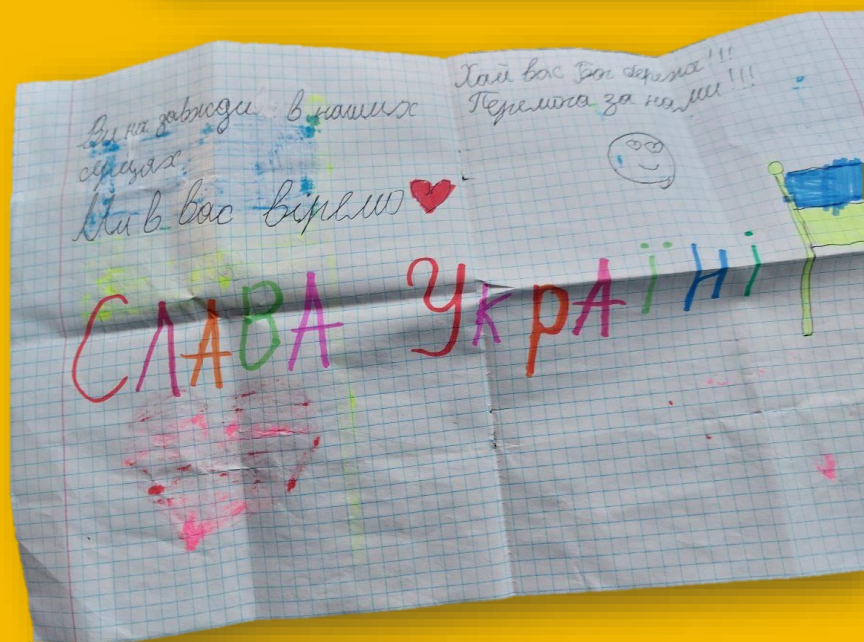 Ви на завжди в наших
серцях
Ми в вас віремо
Хай вас Бог береже!!!
Перемога за нами!!!
СЛАВА УКРАЇНІ